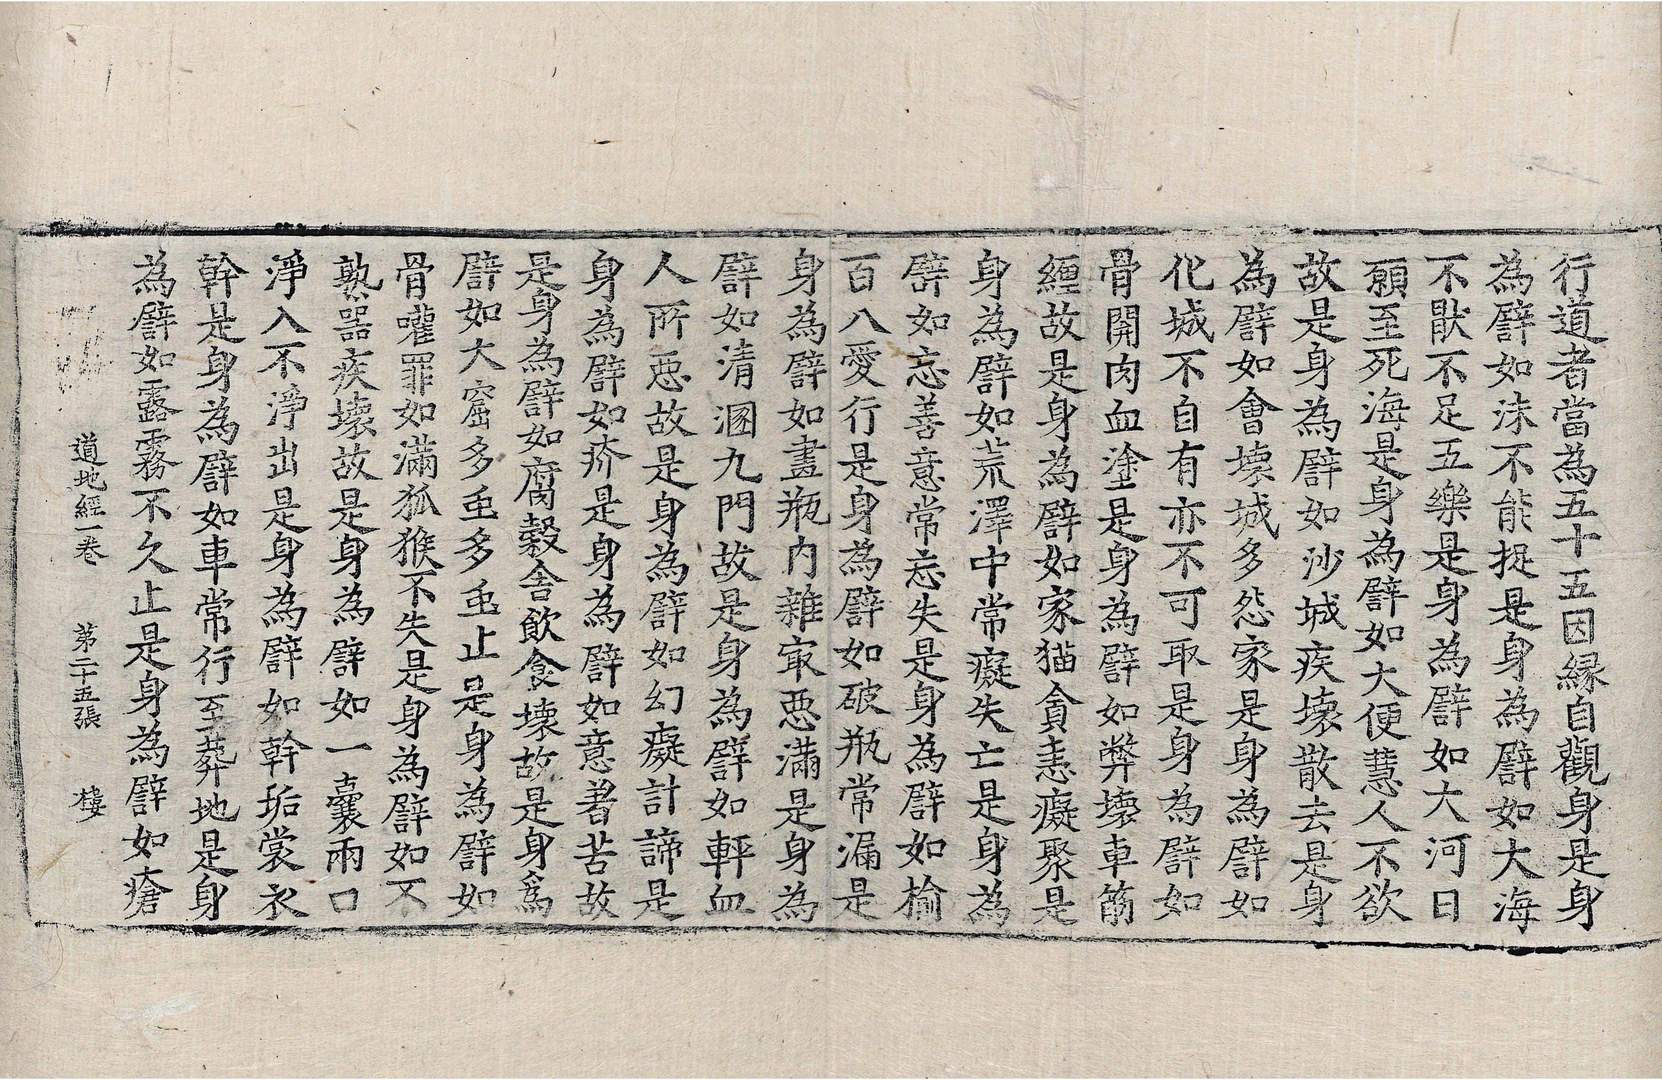 行道者當為五十五因縁自觀身是身
為譬如沫不能捉是身為譬如大海
不猒不足五樂是身為譬如大河日
願至死海是身為譬如大便慧人不欲
故是身為譬如沙城疾壞散去是身
為譬如會壞城多怨家是身為譬如
化城不自有亦不可取是身為譬如
骨開肉血塗是身為譬如弊壞車筋
纏故是身為譬如家猫貪恚癡聚是
身為譬如荒澤中常癡失亡是身為
譬如忘善意常忘失是身為譬如揄
百八愛行是身為譬如破瓶常漏是
身為譬如畫瓶內雜㝡惡滿是身為
譬如清溷九門故是身為譬如軯血
人所惡故是身為譬如幻癡計諦是
身為譬如疥是身為譬如意著苦故
是身為譬如腐穀舍飲食壞故是身為
譬如大窟多虫多虫止是身為譬如
骨嚾罪如滿狐猴不失是身為譬如不
熟器疾壞故是身為譬如一囊兩口
淨入不淨出是身為譬如幹垢裳衣
幹是身為譬如車常行至葬地是身
為譬如露霧不久止是身為譬如瘡
道地經一卷 第二十五張 樓